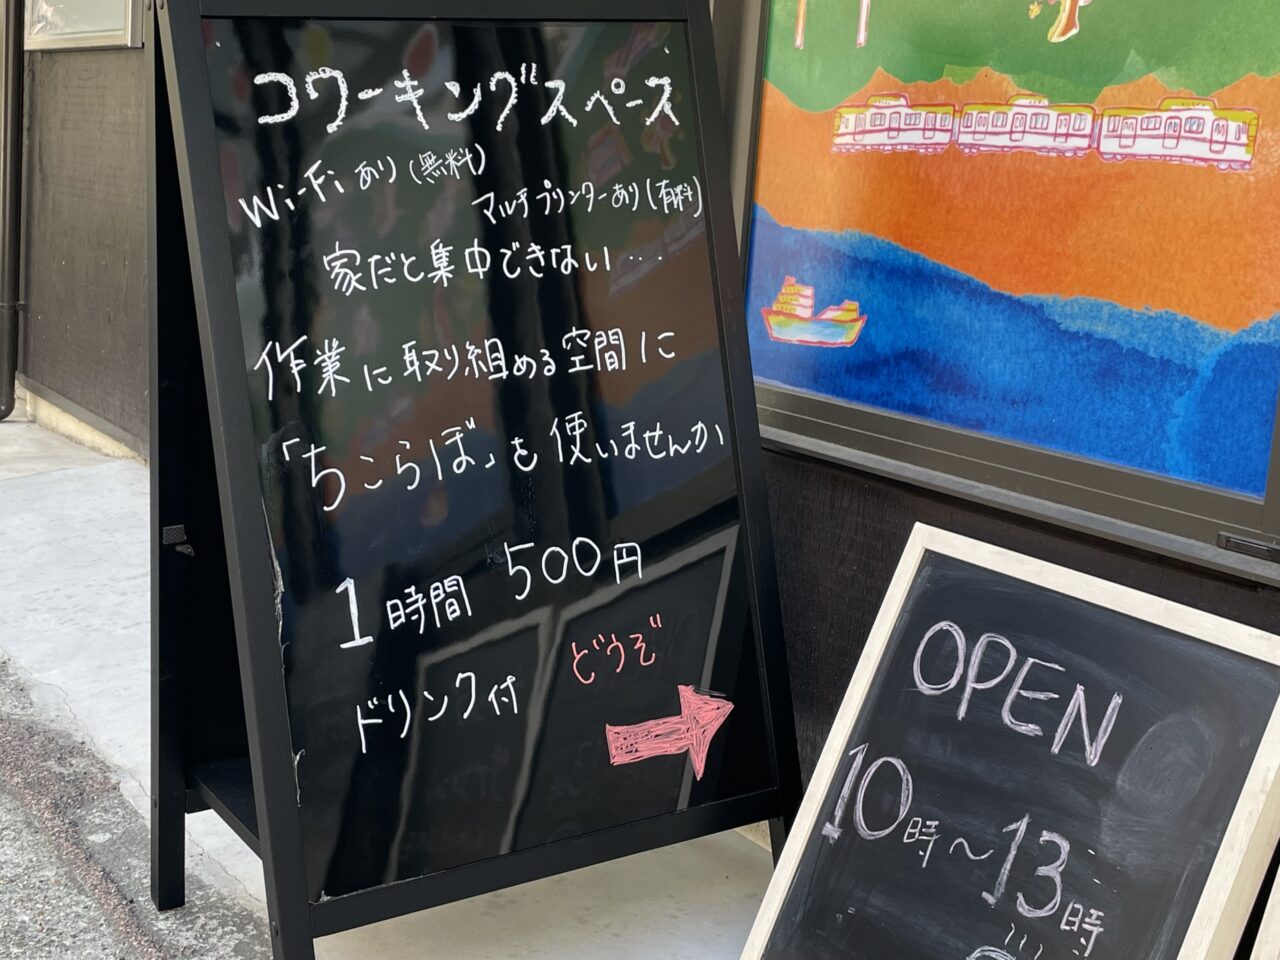 コワーキングスペース
Wi-Fi あり(無料)
マルチプリンターあり(有料)
家だと集中できない….
作業に取り組める空間に
「ちこらぼ」を使いませんか
1時間 500円
ドリンク付
どうぞ
OPEN
10時～13時